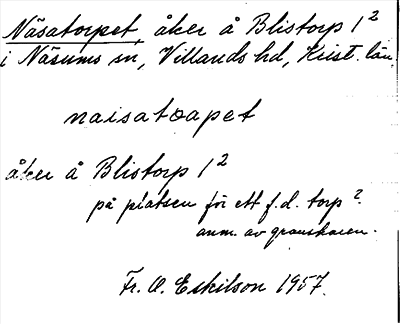 Näsatorpet, åker å Blistorp 1²
i Näsums sn, Villands hd, Krist. län.
naisatoapet
åker å Blistorp 1²
på platsen för ett f.d. torp?
anm. av granskaren.
Fr. O. Eskilson 1957.